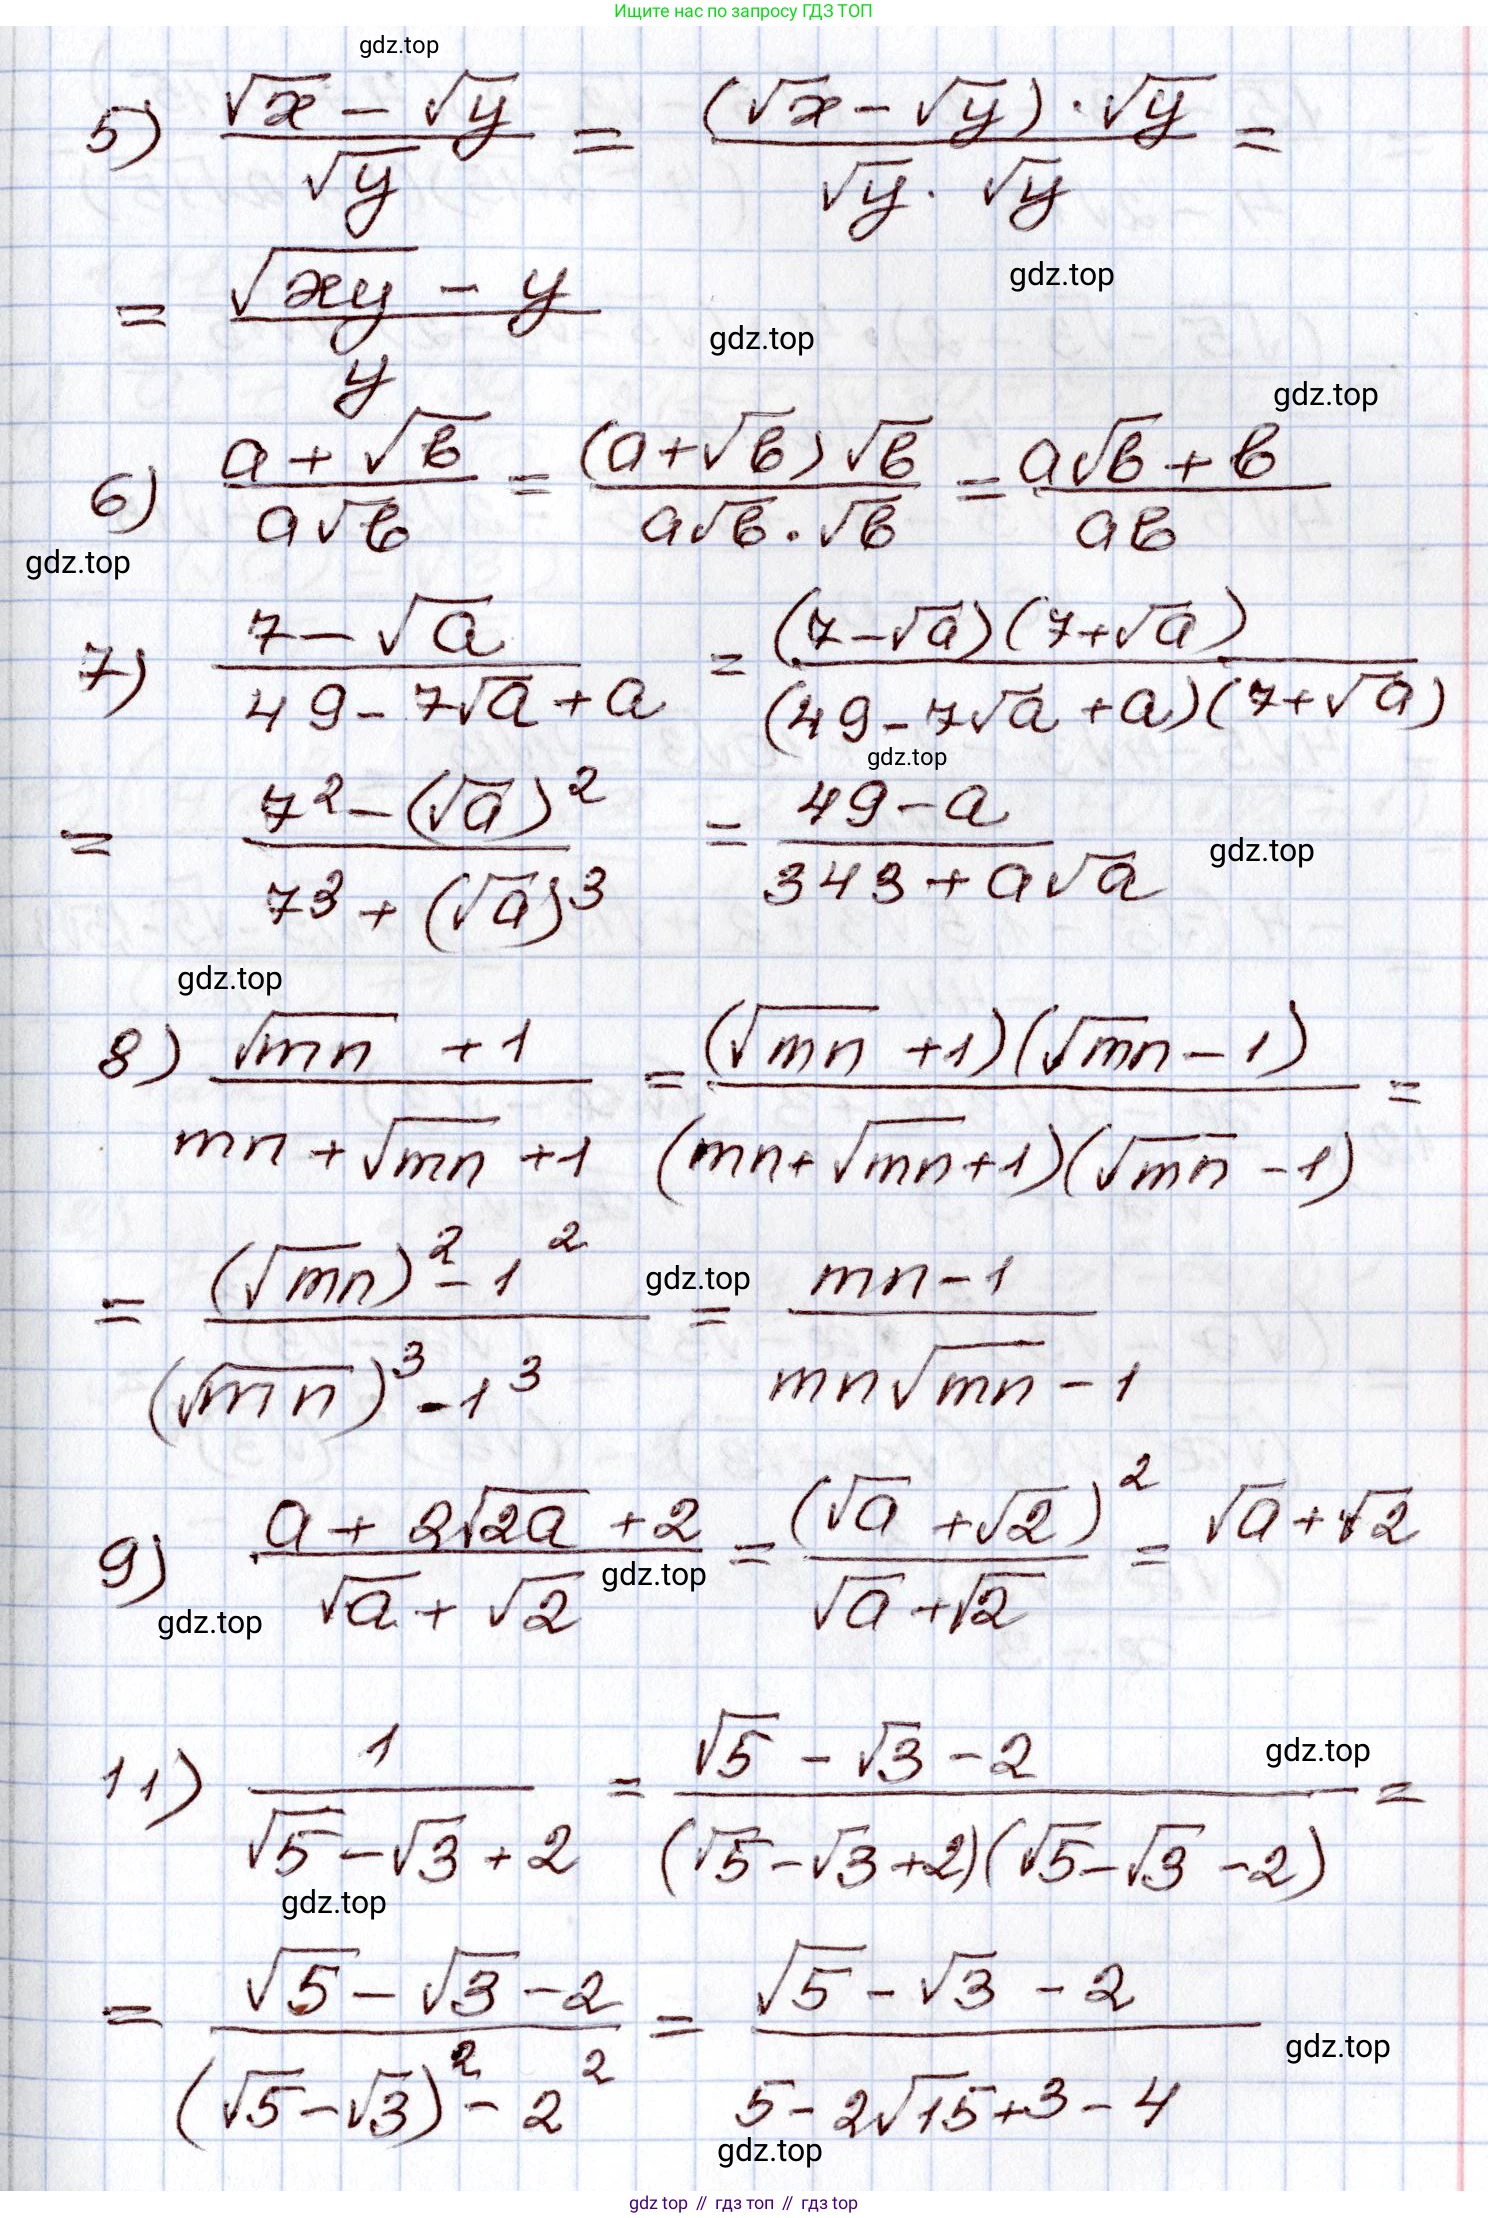 Ищите нас по запросу ГДЗ ТОП
gdz.top
5) (√x − √y)/√y = ((√x − √y) · √y)/(√y · √y) =
gdz.top
= (√(xy) − y)/y
gdz.top
gdz.top
6) (a + √b)/(a√b) = ((a + √b) √b)/(a√b · √b) = (a√b + b)/(ab)
gdz.top
7) (7 − √a)/(49 − 7√a + a) = ((7 − √a)(7 + √a))/((49 − 7√a + a)(7 + √a))
gdz.top
= (7² − (√a)²)/(7³ + (√a)³) = (49 − a)/(343 + a√a)
gdz.top
gdz.top
8) (√(mn) + 1)/(mn + √(mn) + 1) = ((√(mn) + 1)(√(mn) − 1))/((mn + √(mn) + 1)(√(mn) − 1)) =
= ((√(mn))² − 1²)/((√(mn))³ − 1³) = (mn − 1)/(mn√(mn) − 1)
gdz.top
9) (a + 2√(2a) + 2)/(√a + √2) = (√a + √2)²/(√a + √2) = √a + √2
gdz.top
gdz.top
11) 1/(√5 − √3 + 2) = (√5 − √3 − 2)/((√5 − √3 + 2)(√5 − √3 − 2)) =
gdz.top
gdz.top
= (√5 − √3 − 2)/((√5 − √3)² − 2²) = (√5 − √3 − 2)/(5 − 2√15 + 3 − 4)
gdz.top
gdz.top
gdz top // гдз топ // gdz top